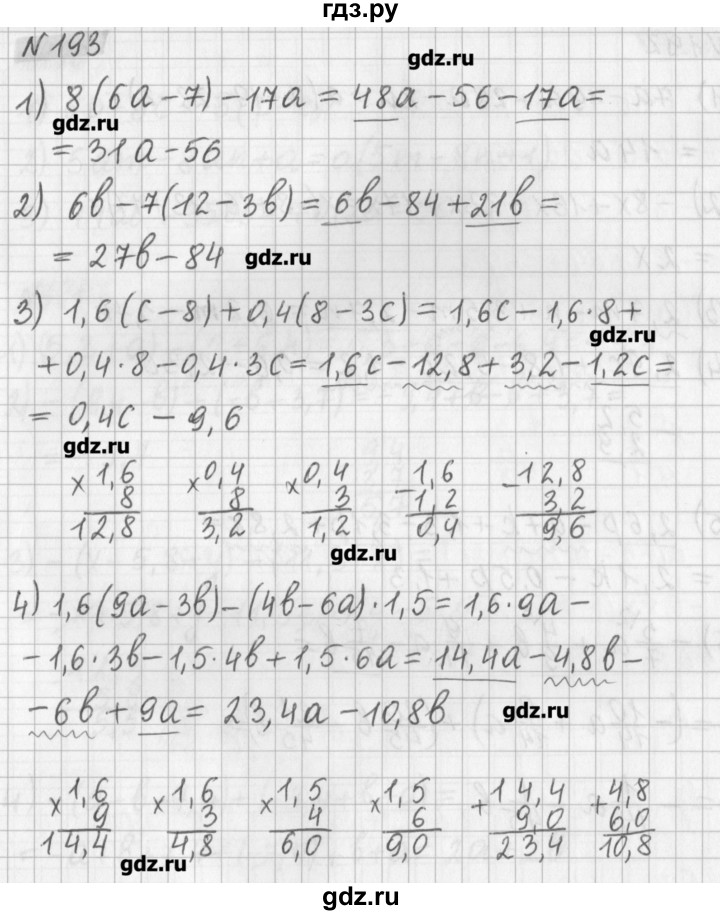 гдз.ру
N193
gdz.ru
1) 8(6a-7)-17a = 48a-56-17a=
gdz.ru
= 31a-56
2) 6в-7(12-3в) = 6в-84+21в =
= 27в-84 gdz.ru
3) 1,6(c-8)+0,4(8-3c) = 1,6c-1,6·8+
gdz.ru
+0,4·8-0,4·3c = 1,6c-12,8+3,2-1,2c=
= 0,4c - 9,6
gdz.ru
× 1,6 × 0,4 × 0,4 - 1,6 - 12,8
8 8 3 1,2 3,2
12,8 3,2 1,2 0,4 9,6
gdz.ru
4) 1,6(9a-3в)-(4в-6a)·1,5 = 1,6·9a-
-1,6·3в-1,5·4в+1,5·6a = 14,4a-4,8в-
-6в+9a = 23,4a-10,8в gdz.ru
× 1,6 × 1,6 × 1,5 × 1,5 + 14,4 + 4,8
9 3 4 6 9,0 6,0
14,4 4,8 6,0 9,0 23,4 10,8
gdz.ru
gdz.ru